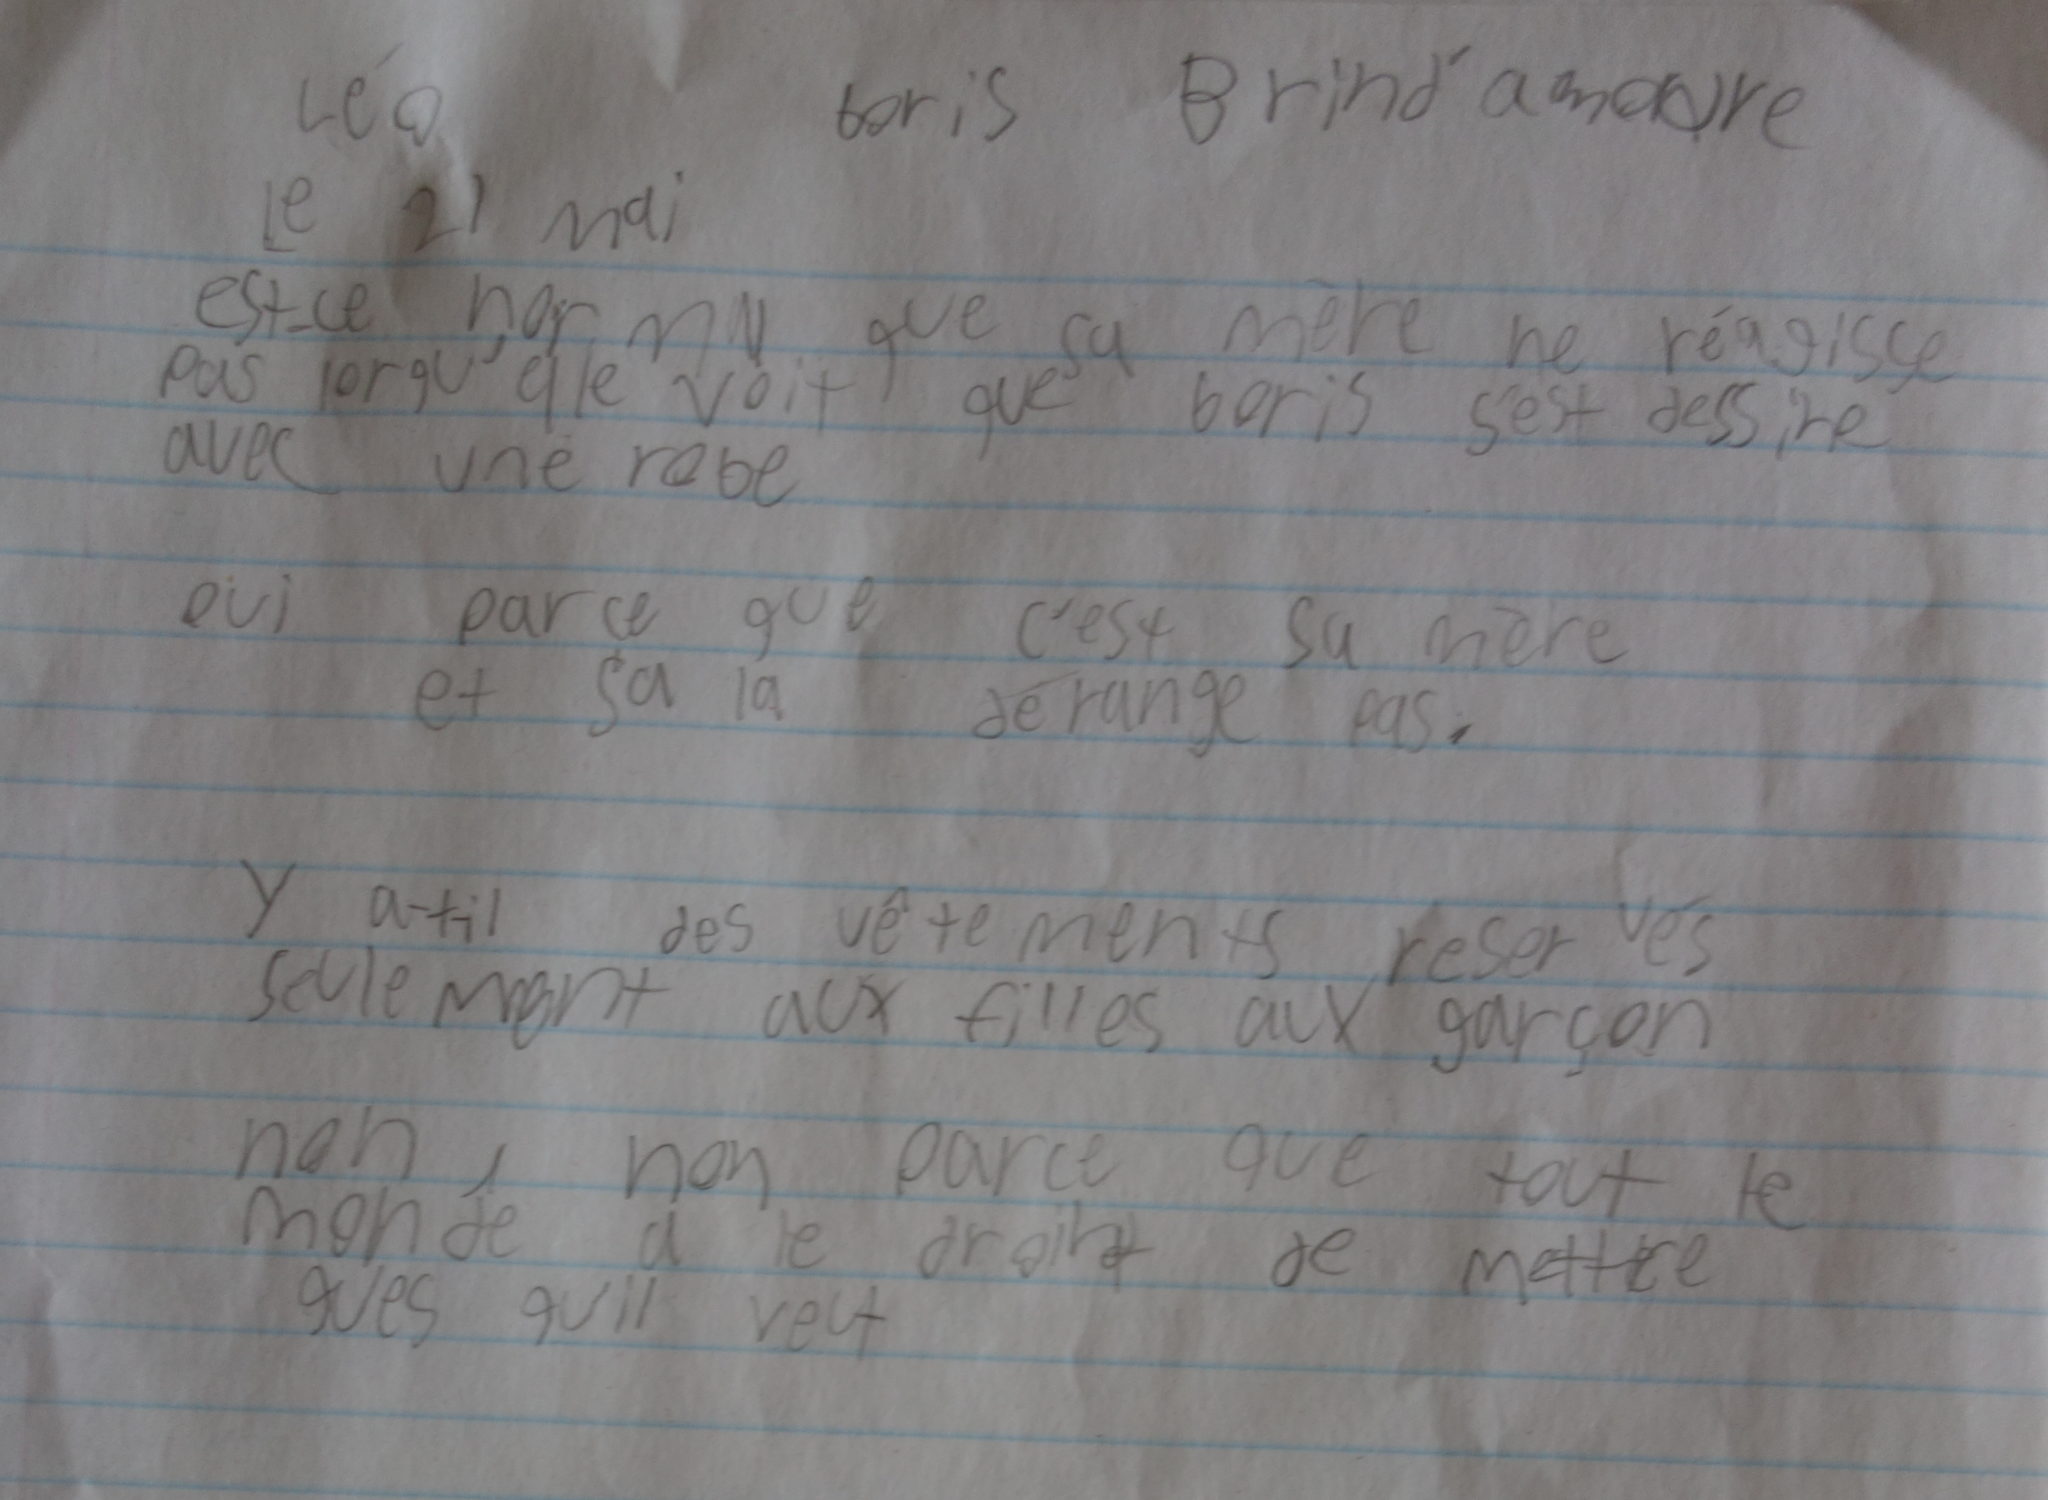 Léo boris Brind'amoure
le 21 mai
est-ce que sa mère ne réagisse
pas lorqu'elle voit que boris s'est dessine
avec une robe
oui parce que c'est sa mère
et sa la dérange pas.
Y a-t-il des vêtements reservés
seulement aux filles aux garçon
non, non parce que tout le
monde a le droint de mettre
ques quil veut